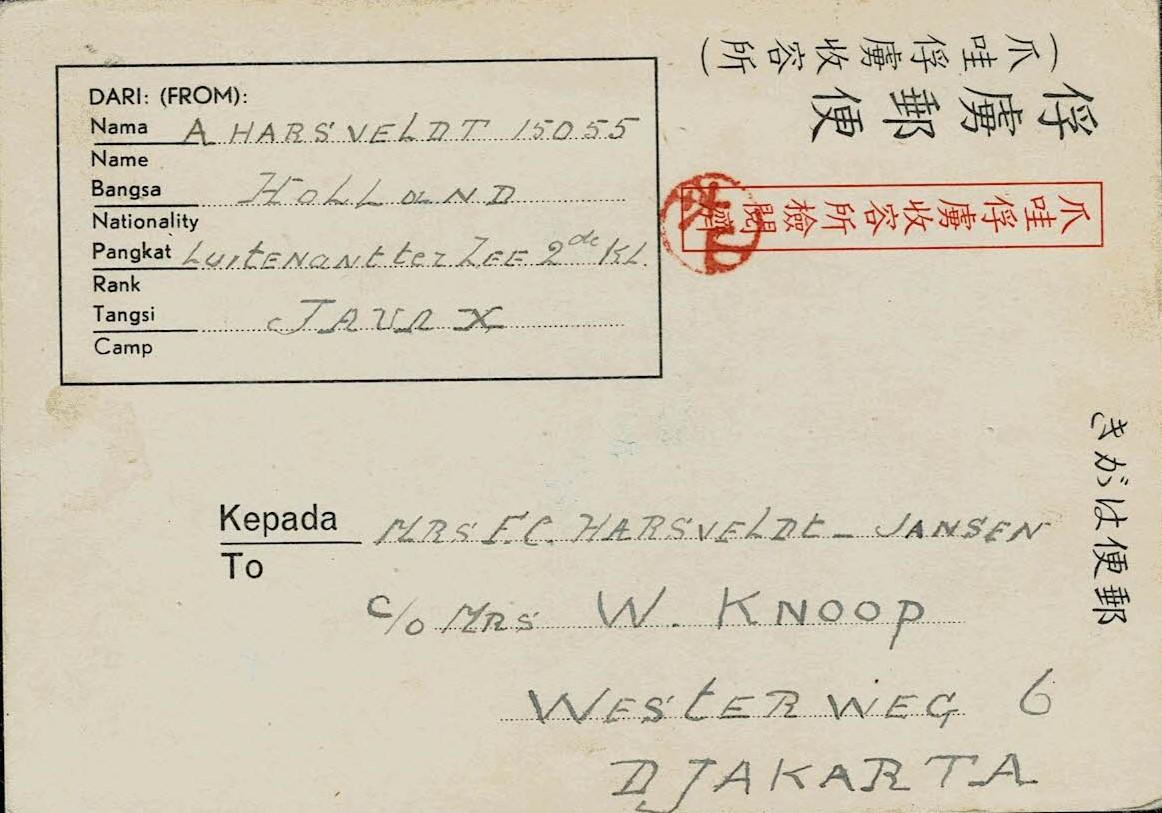 (爪哇俘虜收容所)
俘虜郵便
爪哇俘虜收容所檢閲濟
郵便はがき
DARI: (FROM):
Nama A HARSVELDT 15055
Name
Bangsa HOLLAND
Nationality
Pangkat Luitenant ter Zee 2de KL.
Rank
Tangsi JAVA X
Camp
Kepada MRS F.C. HARSVELDt - JANSEN
To
c/o MRS W. KNOOP
WEStERWEG 6
DJAKARTA